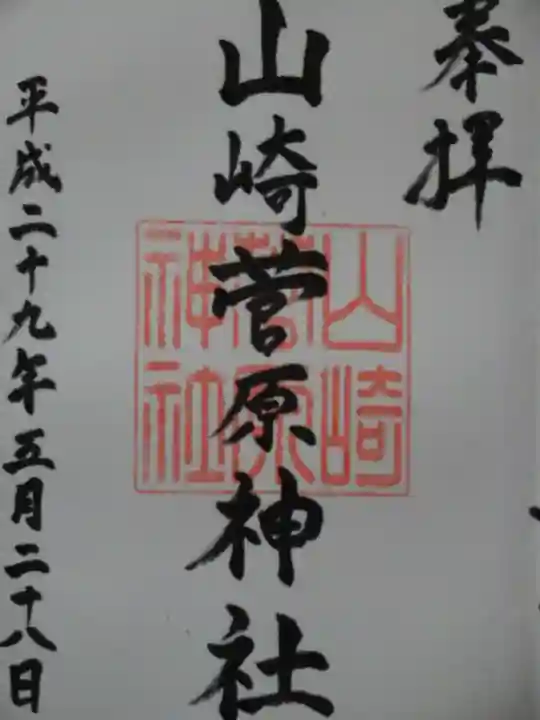 奉拝
山崎菅原神社
山崎
菅原
神社
平成二十九年五月二十八日